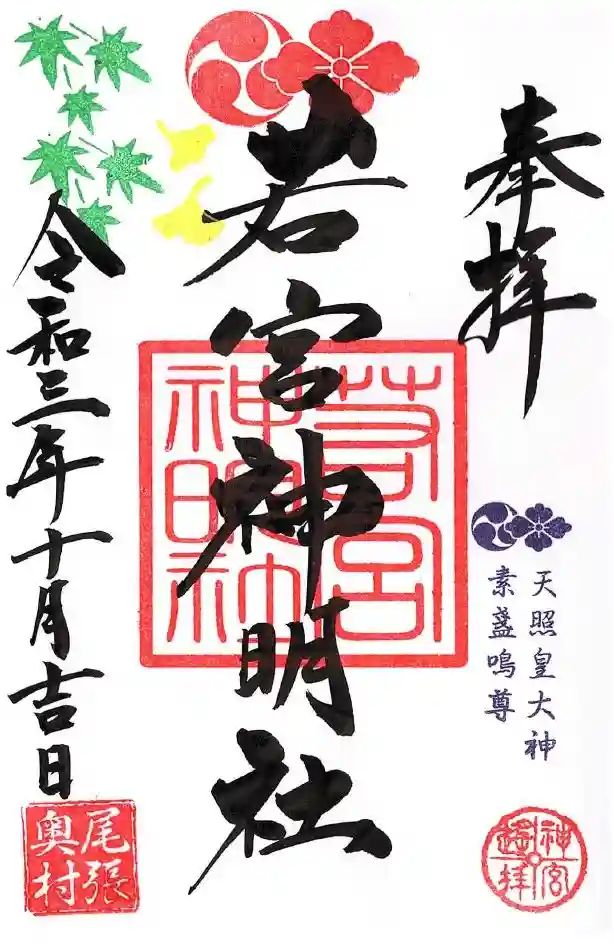 奉拝
天照皇大神
素盞嗚尊
神宮
遥拝
若宮神明社
若宮
神明社
令和三年十月吉日
尾張
奥村